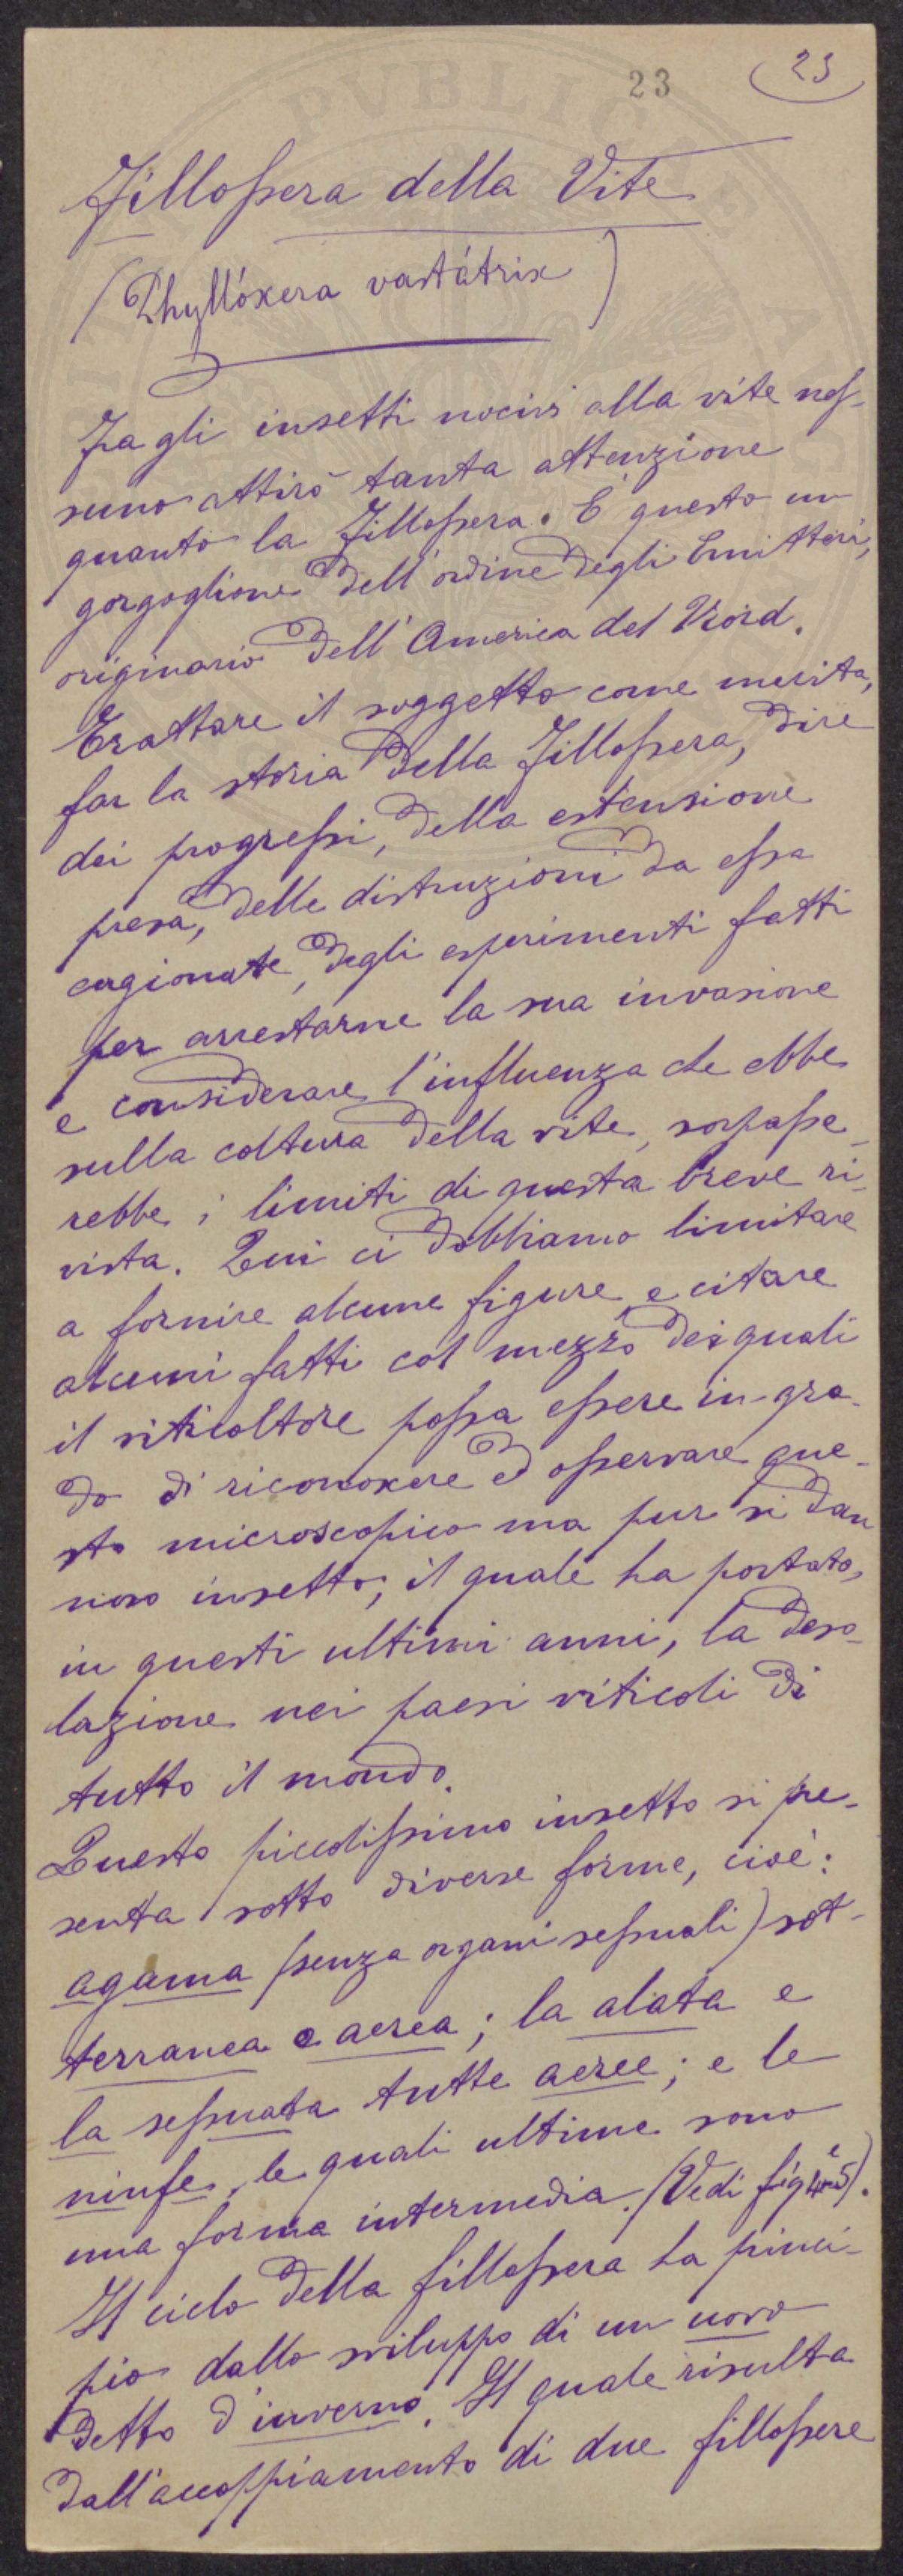 23
23
Fillossera della Vite
(Phyllóxera vastátrix)
Fra gli insetti nocivi alla vite nes-
suno attirò tanta attenzione
quanto la Fillossera. È questo un
gorgoglione dell'ordine degli Emitteri,
originario dell'America del Nord.
Trattare il soggetto come merita,
far la storia della Fillossera, dire
dei progressi, della estensione
presa, delle distruzioni da essa
cagionate, degli esperimenti fatti
per arrestarne la sua invasione
e considerare l'influenza che ebbe
sulla coltura della vite, sorpasse-
rebbe i limiti di questa breve ri-
vista. Qui ci dobbiamo limitare
a fornire alcune figure e citare
alcuni fatti col mezzo dei quali
il viticoltore possa essere in gra-
do di riconoscere ed osservare que-
sto microscopico ma pur sì dan
noso insetto, il quale ha portato,
in questi ultimi anni, la deso-
lazione nei paesi viticoli di
tutto il mondo.
Questo piccolissimo insetto si pre-
senta sotto diverse forme, cioè:
agama (senza organi sessuali) sot-
terranea e aerea; la alata e
la sessuata tutte aeree; e le
ninfe, le quali ultime sono
una forma intermedia. (Vedi fig 4 e 5).
Il ciclo della fillossera ha princi-
pio dallo sviluppo di un uovo
detto d'inverno. Il quale risulta
dall'accoppiamento di due fillossere